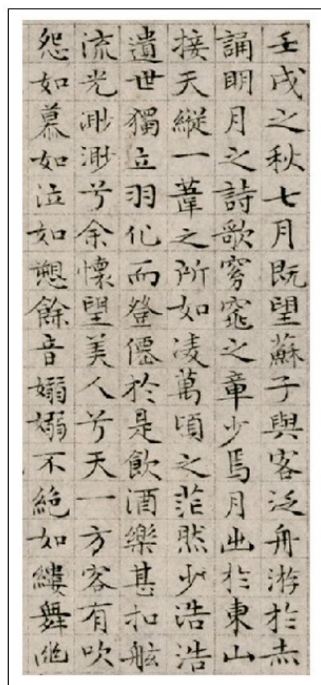 壬戌之秋七月既望蘇子與客泛舟游於赤
誦明月之詩歌窈窕之章少焉月出於東山
接天縱一葦之所如凌萬頃之茫然少浩浩
遺世獨立羽化而登僊於是飲酒樂甚扣舷
流光渺渺兮余懷望美人兮天一方客有吹
怨如慕如泣如愬餘音嫋嫋不絶如縷舞幽